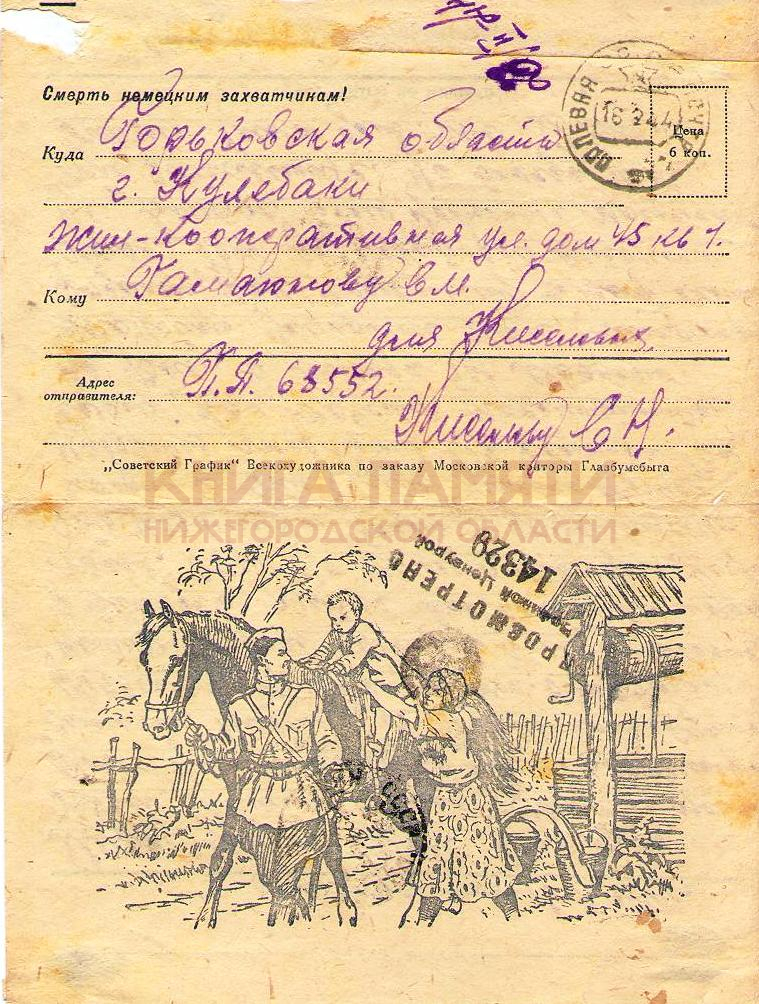 Смерть немецким захватчинам!
ПОЛЕВАЯ
16 2 44
Цена
6 коп.
Куда Горьковская область
г. Кулебаки
Жил-кооперативная ул. дом 45 кв 1.
Кому Гамаюнову В М.
для Киселевых
Адрес
отправителя: П.П. 68552.
С Н.
„Советский График“ Всекохудожника по заказу Московской конторы Главбумсбыта
КНИГА ПАМЯТИ
НИЖЕГОРОДСКОЙ ОБЛАСТИ
ПРОСМОТРЕНО
Военной Цензурой
14329